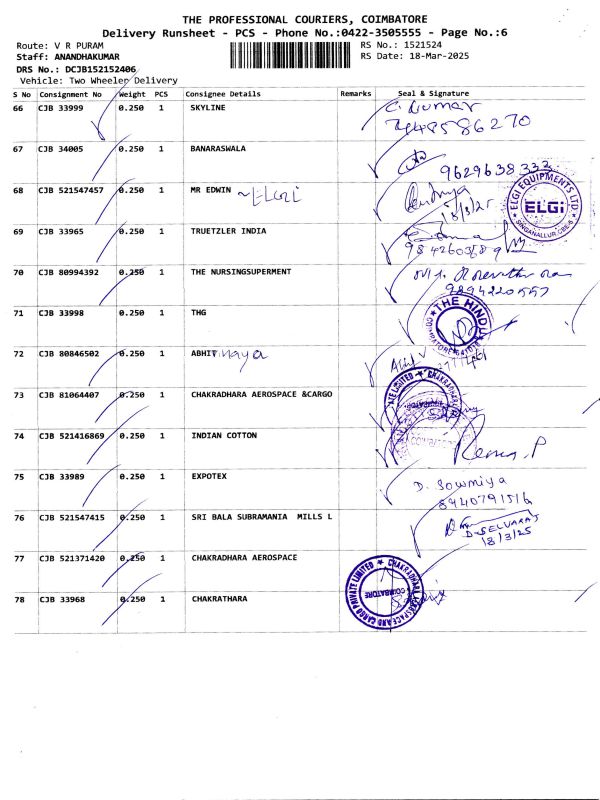 THE PROFESSIONAL COURIERS, COIMBATORE
Delivery Runsheet - PCS - Phone No.:0422-3505555 - Page No.:6
Route: V R PURAM RS No.: 1521524
Staff: ANANDHAKUMAR RS Date: 18-Mar-2025
DRS No.: DCJB152152406
Vehicle: Two Wheeler Delivery
S No Consignment No Weight PCS Consignee Details Remarks Seal & Signature
66 CJB 33999 0.250 1 SKYLINE
67 CJB 34005 0.250 1 BANARASWALA
9629638333
68 CJB 521547457 0.250 1 MR EDWIN ~ELGi
18/3/25
ELGI EQUIPMENTS LTD
ELGi
SINGANALLUR, CBE-5
69 CJB 33965 0.250 1 TRUETZLER INDIA
70 CJB 80994392 0.250 1 THE NURSINGSUPERMENT
71 CJB 33998 0.250 1 THG
THE HINDU
72 CJB 80846502 0.250 1 ABHIT inaya
73 CJB 81064407 0.250 1 CHAKRADHARA AEROSPACE &CARGO
74 CJB 521416869 0.250 1 INDIAN COTTON
75 CJB 33989 0.250 1 EXPOTEX
D. Sowmiya
8940791516
76 CJB 521547415 0.250 1 SRI BALA SUBRAMANIA MILLS L
D.SELVARAJ
18/3/25
77 CJB 521371420 0.250 1 CHAKRADHARA AEROSPACE
78 CJB 33968 0.250 1 CHAKRATHARA
CHAKRADHARA AEROSPACE AND CARGO PRIVATE LIMITED
COIMBATORE